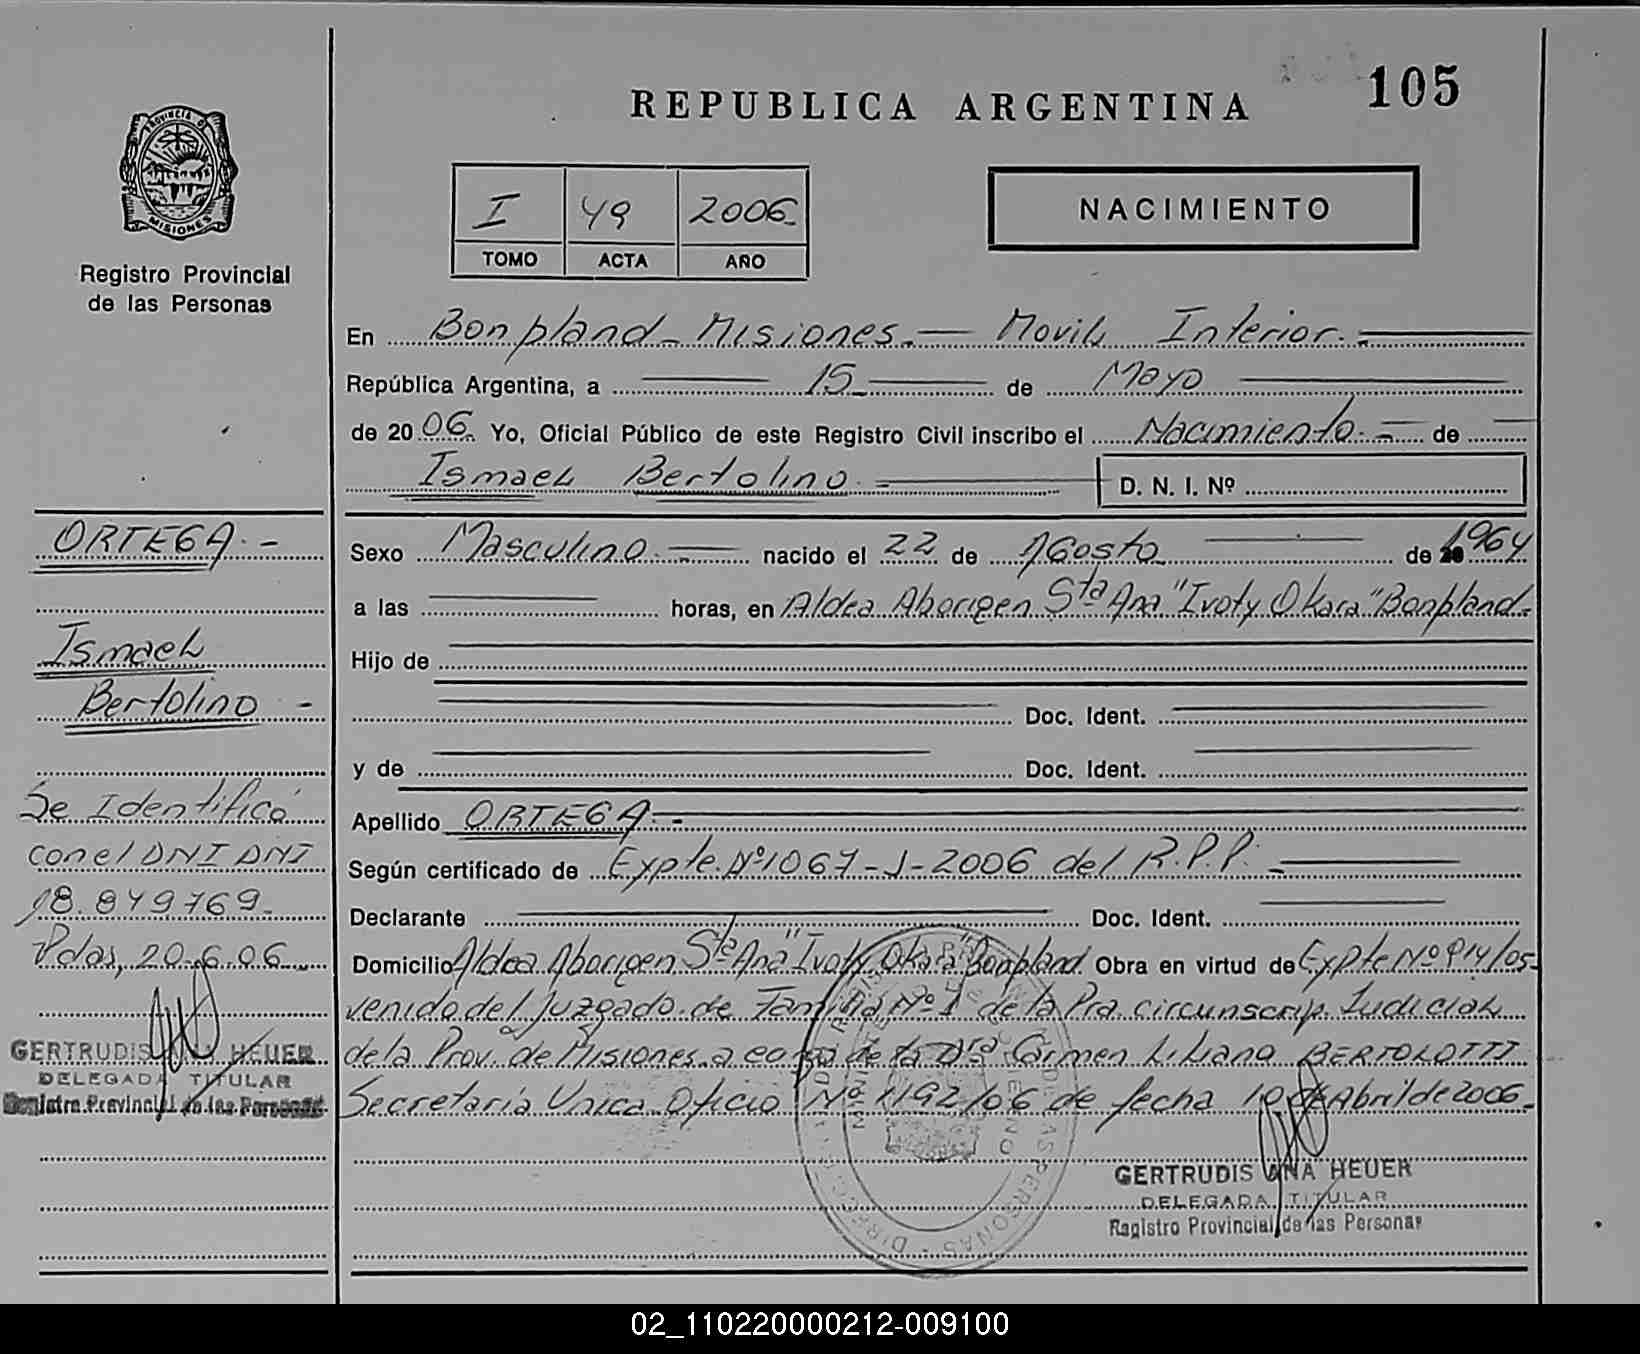 REPUBLICA ARGENTINA
105
PROVINCIA DE
MISIONES
Registro Provincial
de las Personas
I 49 2006
TOMO ACTA AÑO
NACIMIENTO
En Bonpland - Misiones. — Movil Interior. -
República Argentina, a 15 de Mayo
de 2006. Yo, Oficial Público de este Registro Civil inscribo el Nacimiento. - de
Ismael Bertolino. D. N. I. Nº
Sexo Masculino. - nacido el 22 de Agosto de 1964
a las horas, en Aldea Aborigen Sta Ana "Ivoty Okara" Bonpland.
Hijo de
Doc. Ident.
y de Doc. Ident.
Apellido ORTEGA. -
Según certificado de Expte. Nº 1067-J-2006 del R.P.P. -
Declarante Doc. Ident.
Domicilio Aldea Aborigen Sta Ana "Ivoty Okara" Bonpland. Obra en virtud de Expte Nº 914/05-
venido del Juzgado de Familia Nº 1 de la Pra. circunscrip. Judicial
de la Prov. de Misiones a cargo de la Dra Carmen Liliana BERTOLOTTI
Secretaría Unica Oficio Nº 1192/06 de fecha 10 de Abril de 2006.
GERTRUDIS ANA HEUER
DELEGADA TITULAR
Registro Provincial de las Personas
ORTEGA. -
Ismael
Bertolino -
Se Identificó
con el DNI DNI
18.849769.
Pdas, 20.6.06
GERTRUDIS ANA HEUER
DELEGADA TITULAR
Registro Provincial de las Personas
02_110220000212-009100